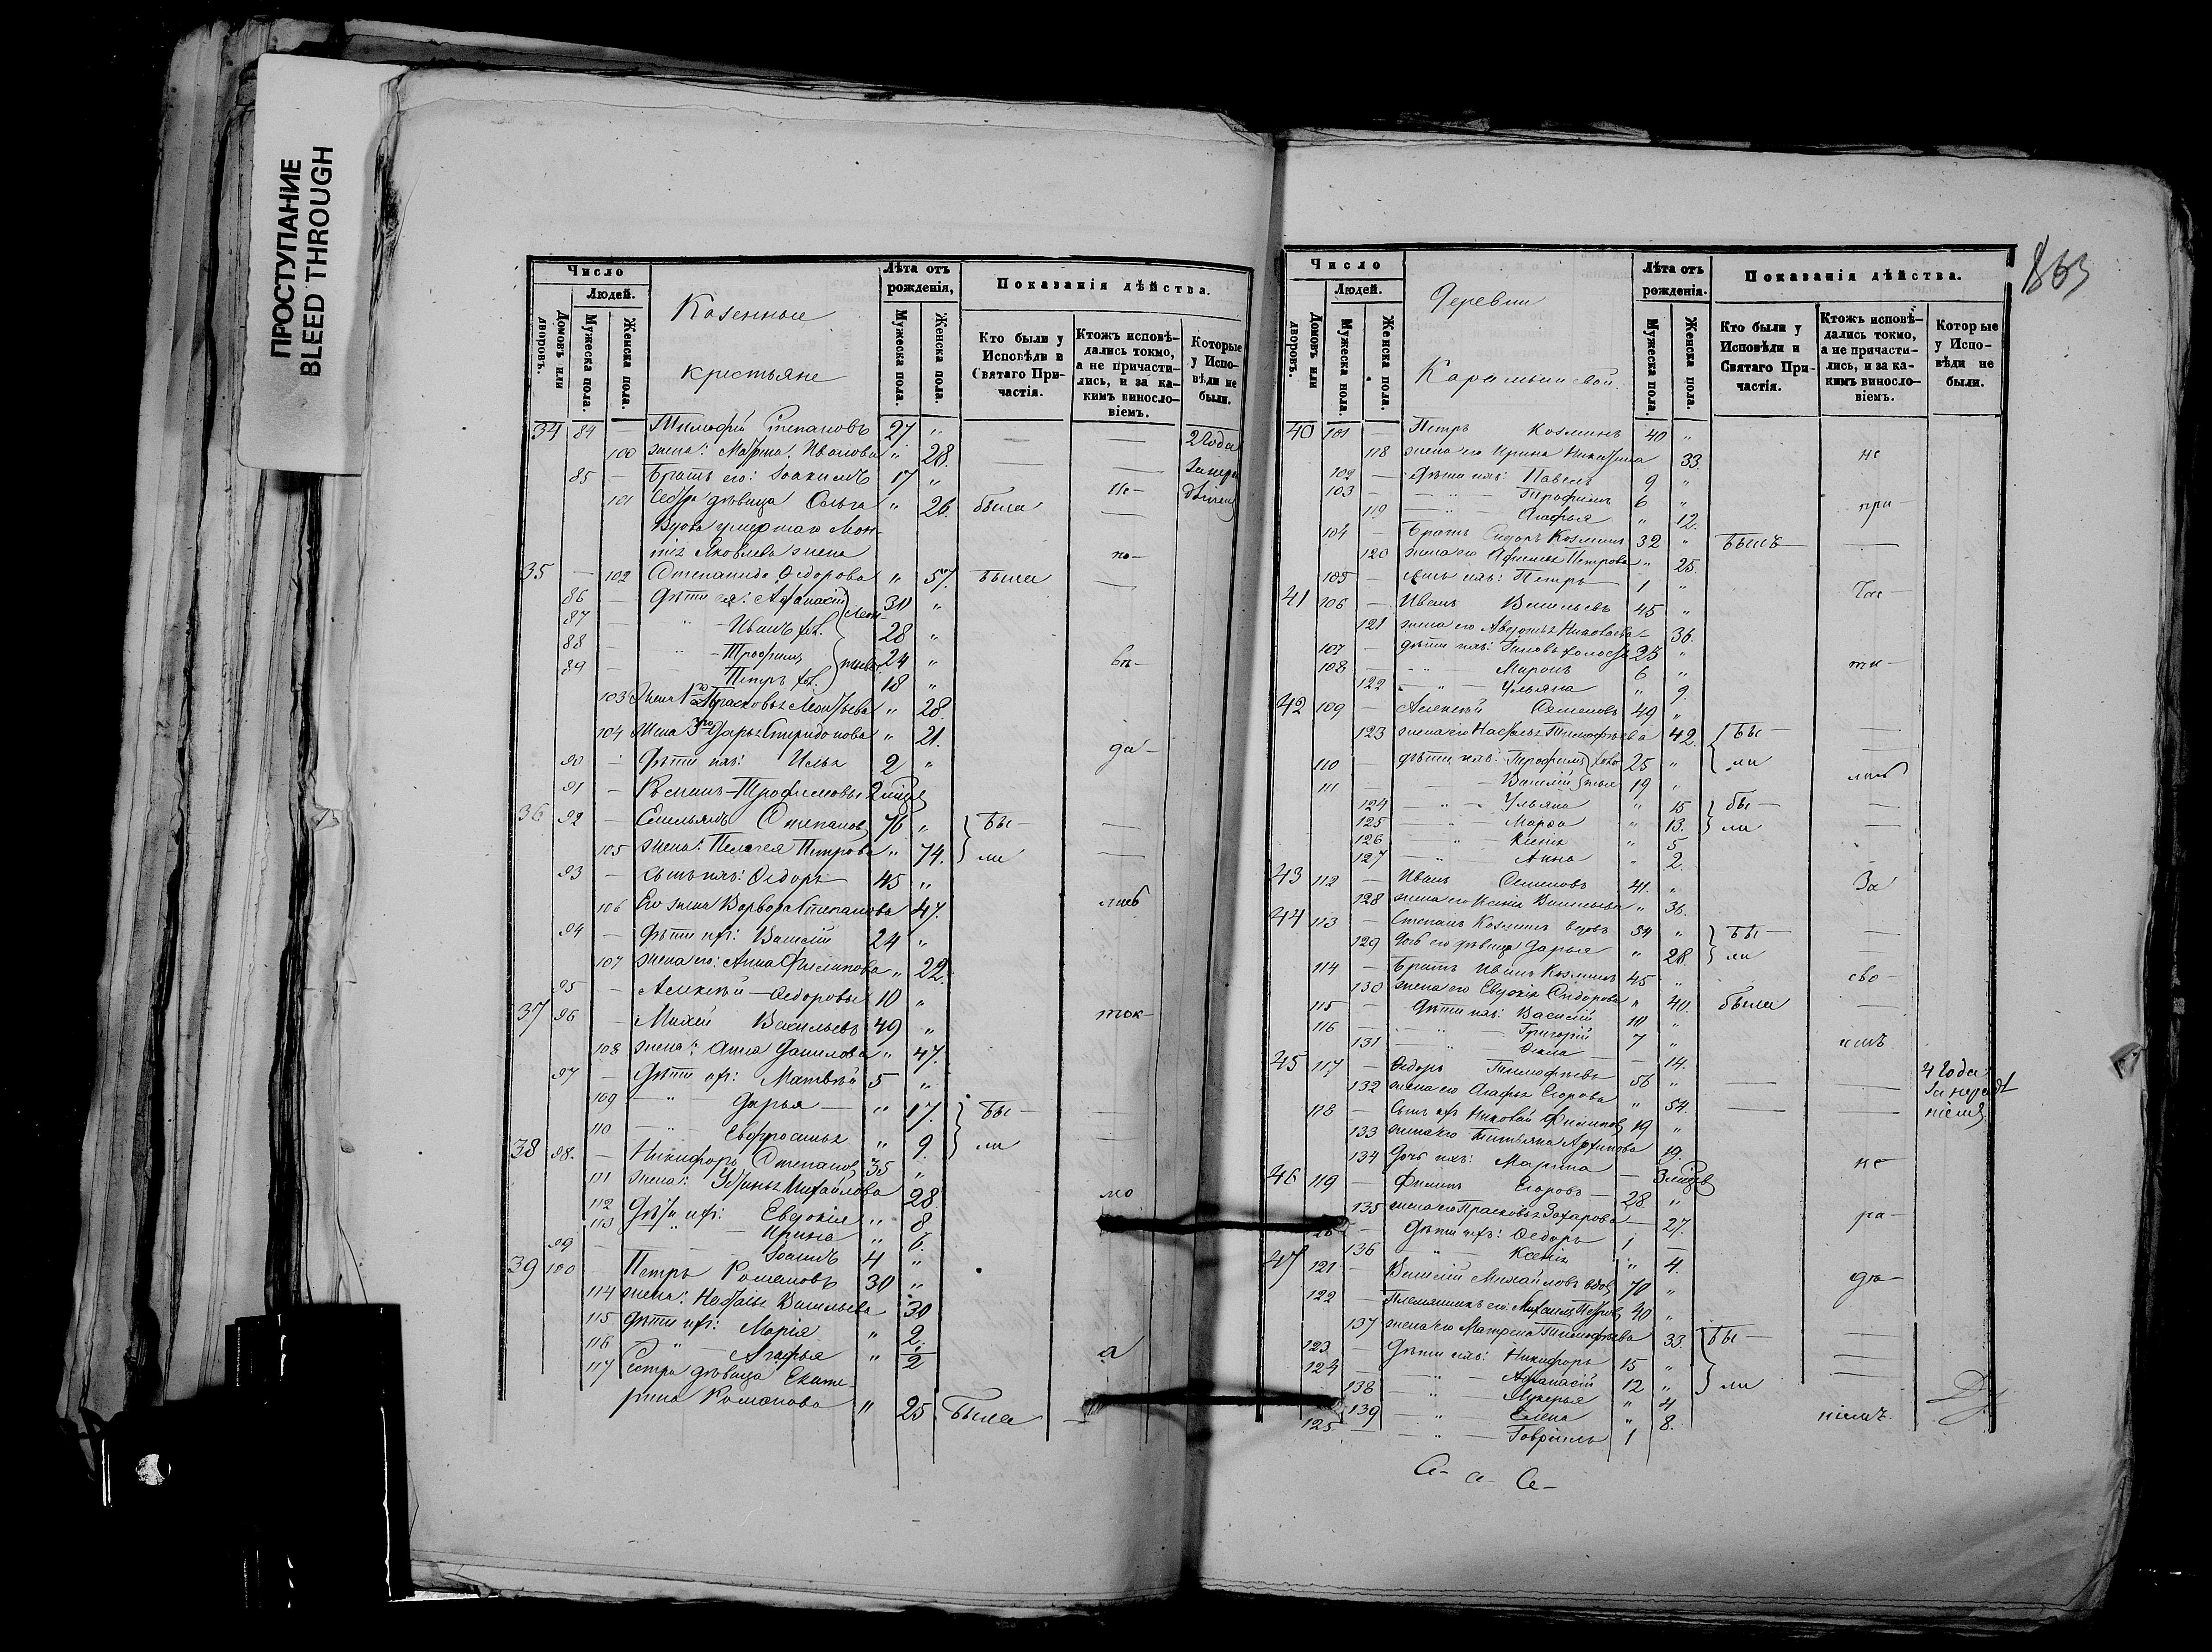 ПРОСТУПАНИЕ
BLEED THROUGH
Число
Людей.
Домовъ или дворовъ.
Мужеска пола.
Женска пола.
Казенные
крестьяне
Лѣта отъ рожденія,
Мужеска пола.
Женска пола.
Показанія дѣйства.
Кто были у Исповѣди и Святаго Причастія.
Ктожъ исповѣдались токмо, а не причастились, и за какимъ винословіемъ.
Которые у Исповѣди не были.
34 84 — Тимофей Степановъ 27 " — — 2 года
100 жена: Марфа Иванова " 28. — —
85 — Братъ его: Іоакимъ 17 "
101 Сестра дѣвица Ольга " 26. была — Не-
Вдова умершаго
Яковлева жена по-
35 — 102 Степанида Ѳедорова " 57. Была —
86 — Дѣти ея: Афанасій 31 "
87 — " — Иванъ хол. 28 "
88 " — Трофимъ 24 " вѣ-
89 — Петръ хол. 18 "
103 Жена 1го Прасковья Леонтьева " 28.
104 Жена 3го Дарья Спиридонова " 21.
90 — Дѣти ихъ: Илья 2 " да-
91 — Романъ Трофимовы
36 92 — Емельянъ Степановъ 76 " Бы- —
105 жена: Пелагея Петрова " 74. ли —
93 — сынъ ихъ: Ѳедоръ 45 "
106 Его жена Варвара Степанова 47.
94 — Дѣти ихъ: Василій 24 "
107 жена его: Анна Филипова " 22.
95 — Алексѣй — Ѳедоровы 10 "
37 96 — Михей Васильевъ 49 " ток-
108 жена: Анна Данилова " 47.
97 — Дѣти ихъ: Матвѣй 5 "
109 — " — Дарья — " 17. Бы- —
110 — " — Евфросинья " 9. ли —
38 98. — Никифоръ Степановъ 35 "
111 жена: Устинья Михайлова 28. мо
112 Дѣти ихъ: Евдокія " 8
113 — " — Ирина " 6.
99 — — Іоаннъ 4 "
39 100 Петръ Романовъ 30 "
114 жена: Настасья Васильева 30
115 дѣти ихъ: Марія " 2.
116 " — Агафья " 1/2 а
117 Сестра дѣвица Екате-
рина Романова " 25 Была —
863
Число
Людей.
Домовъ или дворовъ.
Мужеска пола.
Женска пола.
Деревни
Лѣта отъ рожденія.
Мужеска пола.
Женска пола.
Показанія дѣйства.
Кто были у Исповѣди и Святаго Причастія.
Ктожъ исповѣдались токмо, а не причастились, и за какимъ винословіемъ.
Которые у Исповѣди не были.
40 101 — Петръ Козминъ 40 "
118 жена его Ирина Никитина 33. не
102 — дѣти ихъ: Павелъ 9 "
103 — — " — Трофимъ 6 " при
119 — " — Агафья " 12.
104 — Братъ Сидоръ Козминъ 32 " Былъ —
120 жена его Афимья Петрова " 25.
105 — сынъ ихъ: Петръ 1 "
41 106 — Иванъ Васильевъ 45 " час-
121 жена его Авдотья Николаева 36.
107 — дѣти ихъ: 25 "
108 — — " Миронъ 6 " ти-
122 — " — Ульяна " 9.
42 109 — Алексѣй Семеновъ 49 "
123 жена его Настасья Тимофѣева 42. Бы- —
110 — дѣти ихъ: Трофимъ 25 " ли —
111 — — Василій 19 "
124 — " — Ульяна " 15 бы- —
125 — " — Марфа " 13. ли —
126 — " — Ксенія " 5
127 — " — Анна " 2.
43 112 — Иванъ Семеновъ 41. " За
128 жена его Ксенія Васильева " 36.
44 113 — Степанъ Козминъ вдовъ 54 " Бы- —
129 Дочь его дѣвица Дарья " 28. ли —
114 — Братъ Иванъ Козминъ 45 " сво-
130 жена его Евдокія Сидорова " 40. была —
115 — Дѣти ихъ: Василій 10 "
116 — — " — Григорій 7 " имъ
131 — " — Ѳекла — — 14.
45 117 — Ѳедоръ Тимофѣевъ 56 " — — 4 года
132 жена его Агафья Егорова " 54. — —
118 — Сынъ ихъ Николай Филиповъ 19 "
133 жена его Татьяна Архипова 19.
134 Дочь ихъ: Марина — не-
46 119 — Филипъ Егоровъ — 28. "
135 жена его Прасковья Захарова — 27. ра-
120 — Дѣти ихъ: Ѳедоръ 1 —
136 — " — Ксенія " 4.
47 121 — Василій Михайловъ вдов 70 " дѣ-
122 — Племянникъ его: Михаилъ Петровъ 40 "
137 жена его Матрена Тимофѣева 33. Бы- —
123 — Дѣти ихъ: Никифоръ 15 " —
124 — — " — Афанасій 12 " ли —
138 — " — Лукерья " 4
139 — " — Елена " 8. ніемъ.
125 — " — Гавріилъ 1